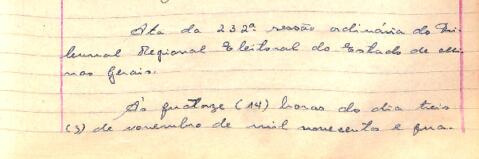 Ata da 232ª sessão ordinária do Tri-
bunal Regional Eleitoral do Estado de Mi-
nas Gerais.
Às quatorze (14) horas do dia treis
(3) de novembro de mil novecentos e qua-